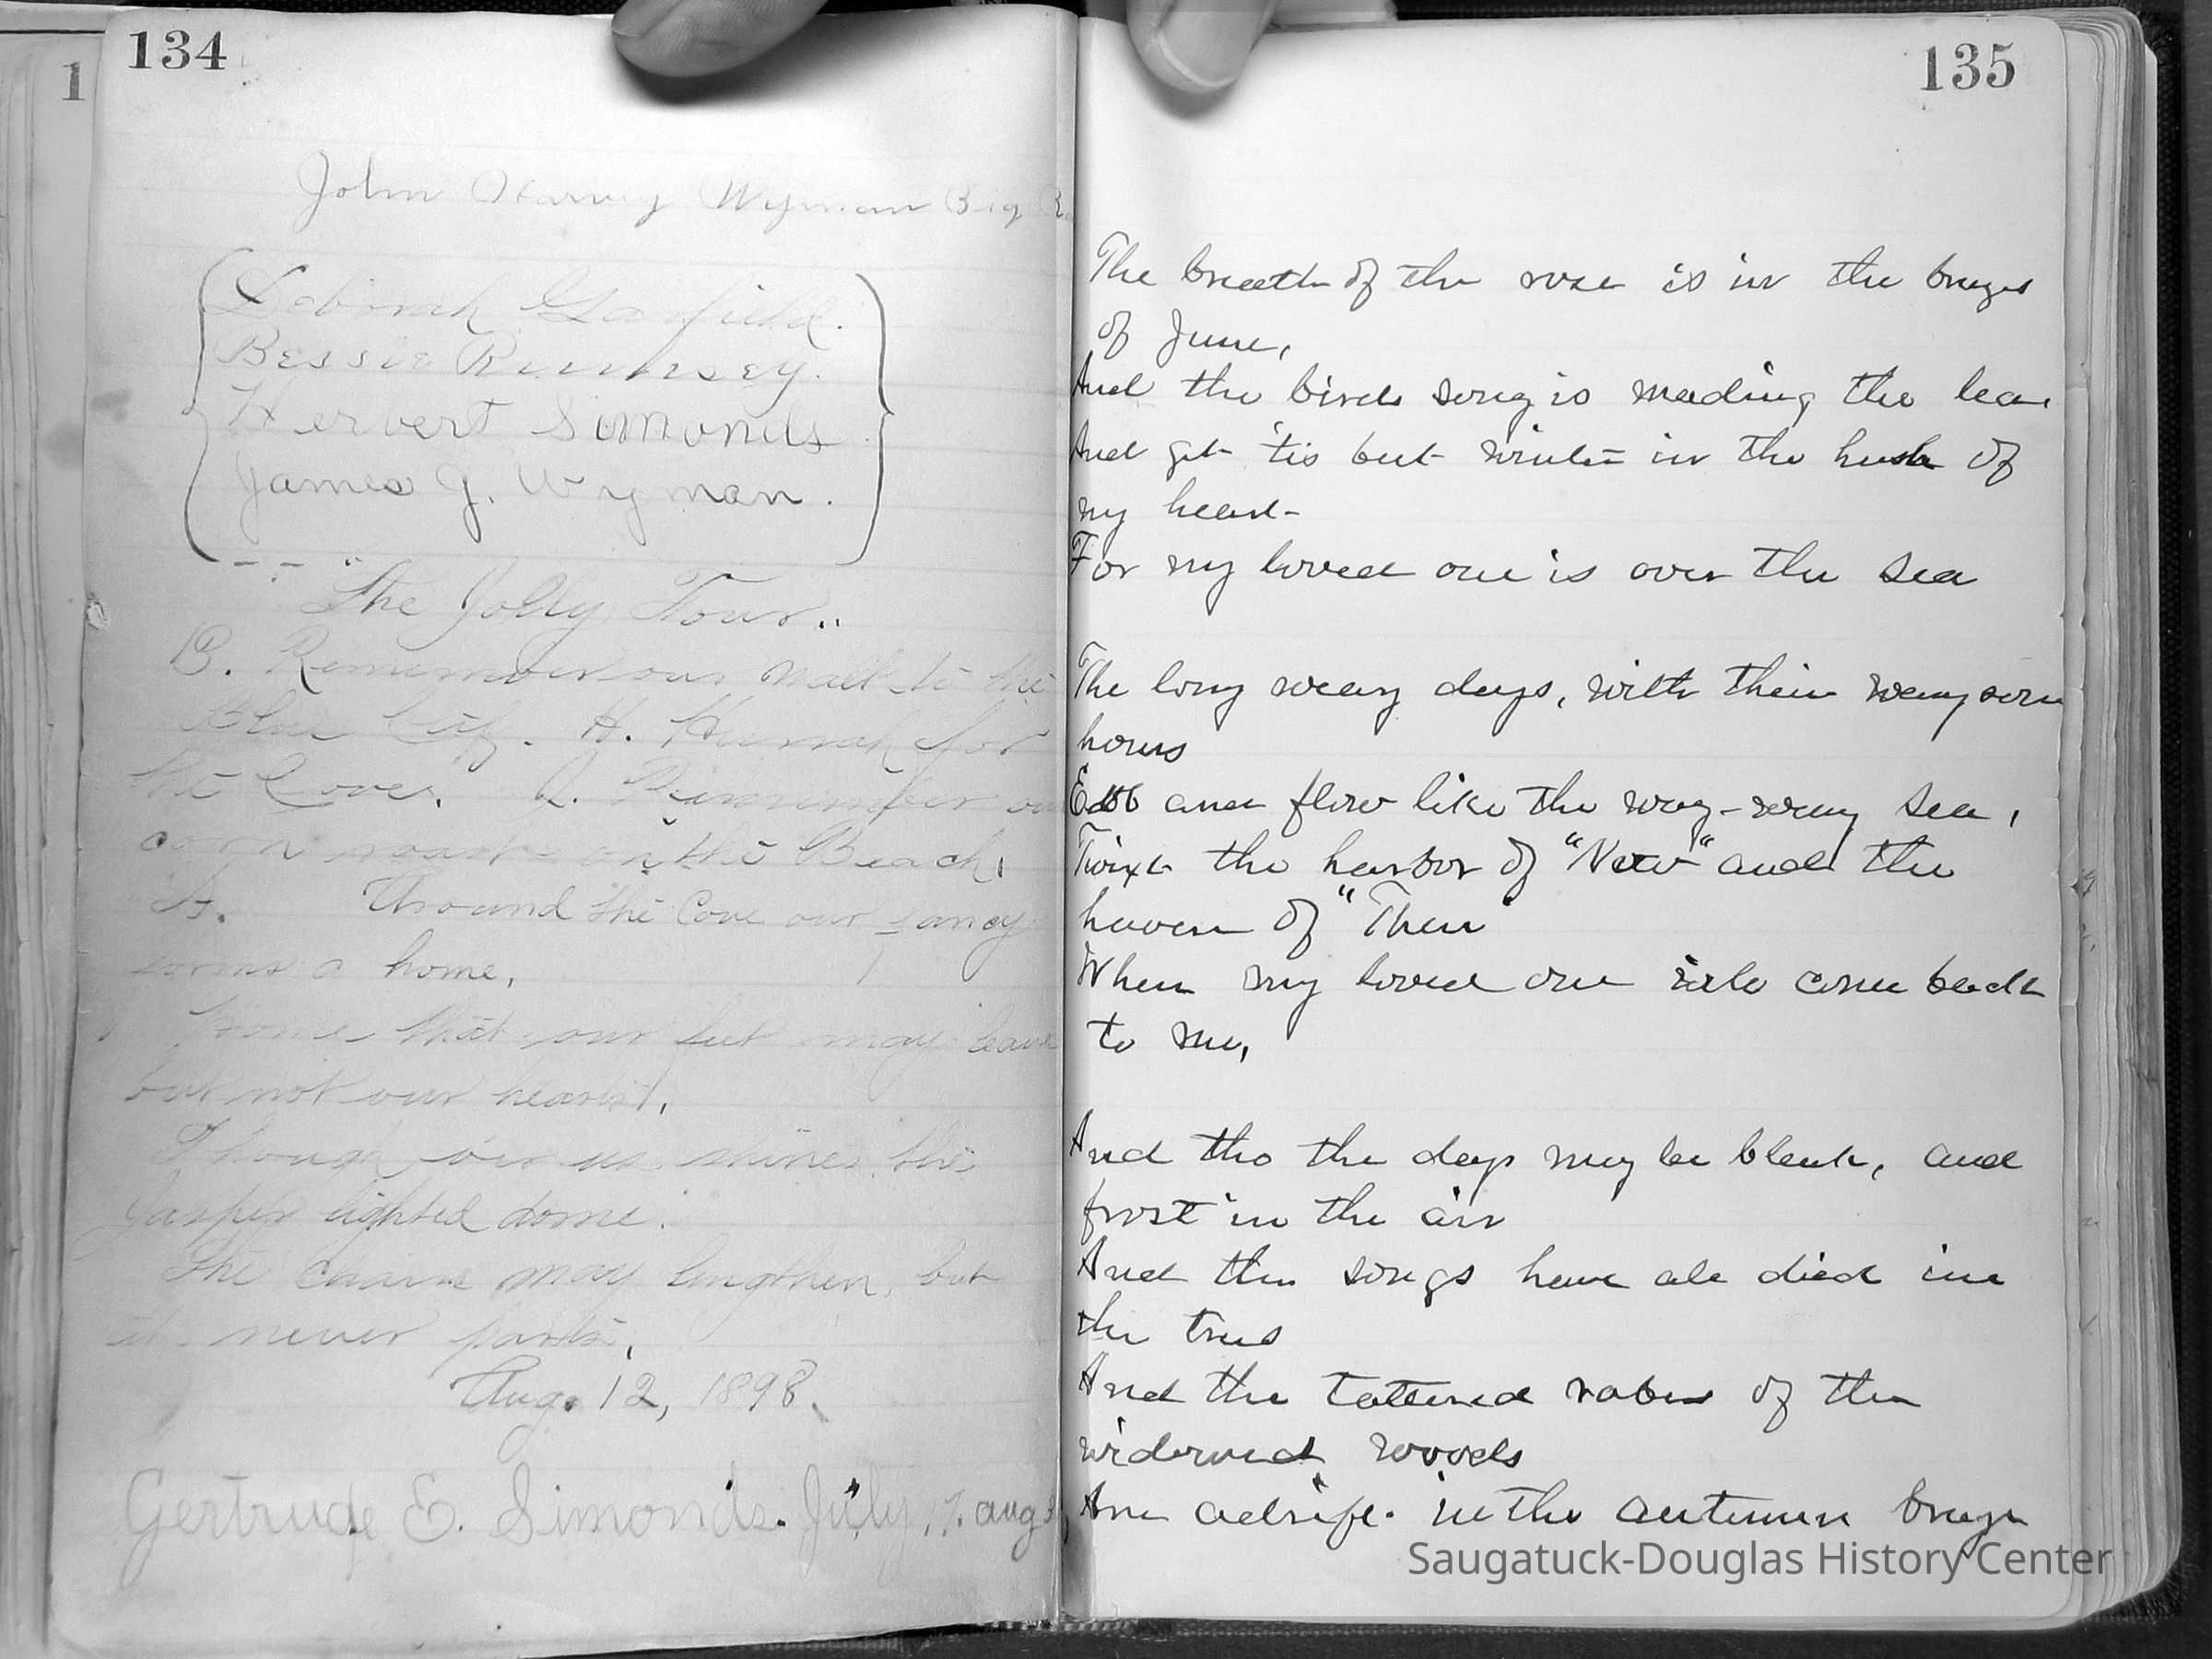 134
John Harvey Wyman Big
Deborah Garfield.
Bessie Rumsey.
Herbert Simonds
James J. Wyman.
"The Jolly Four"
B. Remember our walk to the
Blue City. H. Hurrah for
the Cove. J. Remember our
corn roast on the Beach.
D. Around the Cove our fancy
forms a home,
Home that our feet may leave
but not our hearts,
Though o'er us shines the
jasper lighted dome.
The chains may lengthen, but
it never parts.
Aug. 12, 1898.
Gertrude E. Simonds. July 17. aug
1
135
The breath of the rose is in the breezes
of June,
And the birds song is the
And yet 'tis but winter in the hush of
my heart-
For my loved one is over the sea
The long weary days, with their weary worn
hours
Ebb and flow like the way-weary sea,
Twixt the harbor of "Now" and the
haven of "Then"
When my loved one will come back
to me,
And tho the days may be bleak, and
frost in the air
And the songs have all died in
the trees
And the tattered robes of the
widowed woods
Are adrift in the autumn breeze
Saugatuck-Douglas History Center